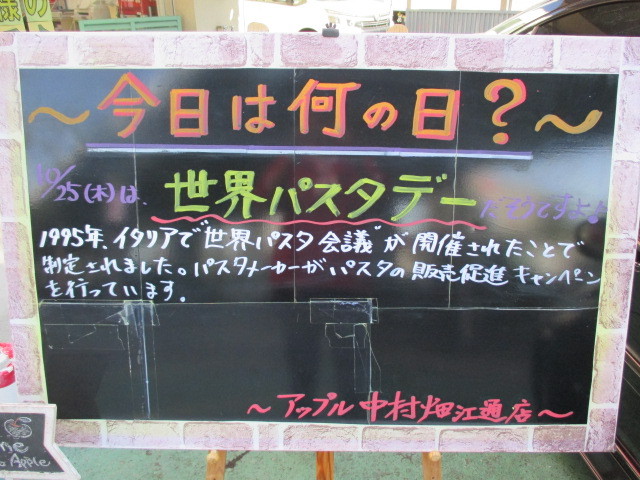 様の
～今日は何の日？～
10/25(木)は、世界パスタデーだそうですよ♪
1995年、イタリアで"世界パスタ会議"が開催されたことで
制定されました。パスタメーカーがパスタの販売促進キャンペーン
を行っています。
～アップル中村畑江通店～
Apple